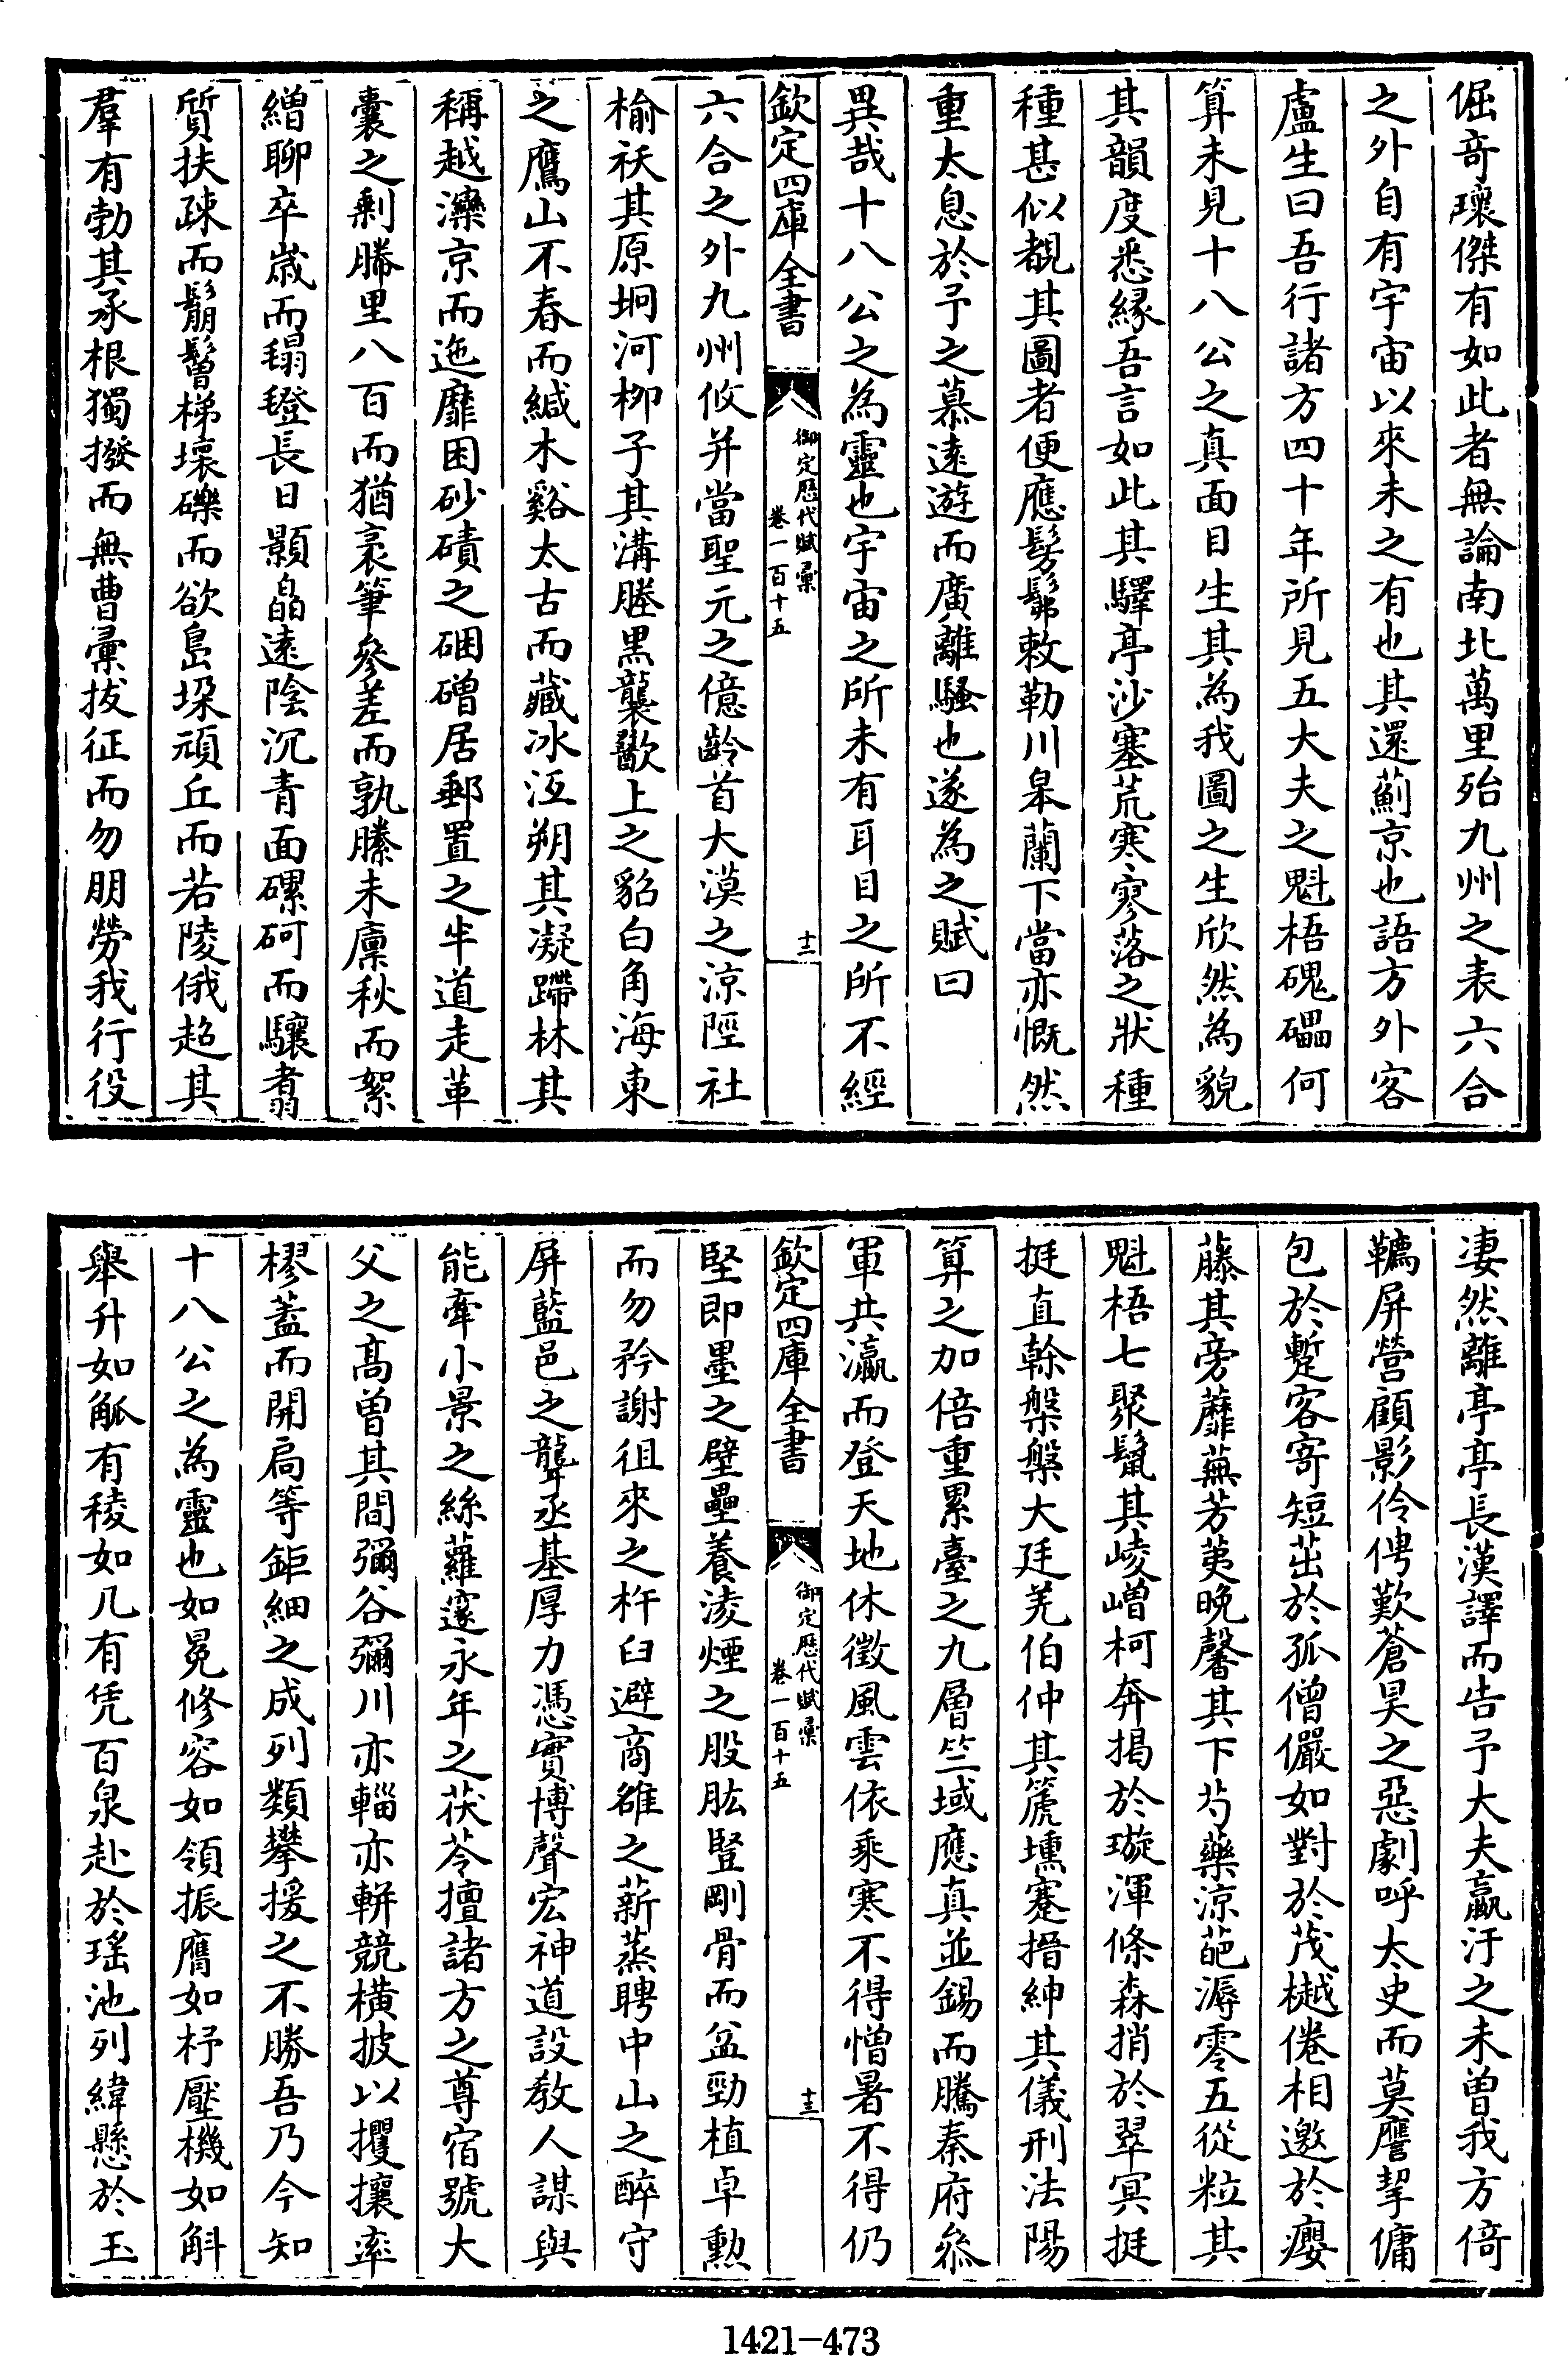 倔竒瓌傑有如此者無論南北萬里殆九州之表六合
之外自有宇宙以來未之有也其還薊京也語方外客
盧生曰吾行諸方四十年所見五大夫之魁梧磈礧何
算未見十八公之真面目生其為我圖之生欣然為貌
其韻度悉緣吾言如此其驛亭沙塞荒寒寥落之狀種
種甚似覩其圖者便應髣髴敕勒川皋蘭下當亦慨然
重太息於予之慕遠遊而廣離騷也遂為之賦曰
異哉十八公之為靈也宇宙之所未有耳目之所不經
欽定四庫全書
御定歷代賦彙
卷一百十五
十二
六合之外九州攸并當聖元之億齡首大漠之涼陘社
榆祆其原坰河栁子其溝塍黒龑歠上之貂白角海東
之鷹山不春而緘木谿太古而藏冰沍朔其凝蹛林其
稱越灤京而迤靡困砂磧之硱磳居郵置之牛道走革
囊之剩勝里八百而猶裹筆參差而孰縢未廪秋而絮
繒聊卒歲而毾㲪長日顥皛遠陰沉青面磥砢而驤翥
質扶疎而鬅鬙梯壞礫而欲島垛頑丘而若陵俄超其
羣有勃其承根獨撥而無曹彙拔征而勿朋勞我行役
凄然離亭亭長漢譯而告予大夫嬴汙之未曾我方倚
韉屏營顧影伶俜歎蒼昊之惡劇呼太史而莫譍挈傭
包於蹔客寄短茁於孤僧儼如對於茂樾倦相邀於癭
藤其旁蘼蕪芳荑晚馨其下芍藥涼葩溽零五從粒其
魁梧七聚鬣其崚嶒柯奔揭於璇渾條森捎於翠冥挺
挺直榦槃槃大廷羌伯仲其箎壎蹇搢紳其儀刑法陽
算之加倍重累臺之九層竺域應真並錫而騰秦府叅
軍共瀛而登天地休徵風雲依乘寒不得憎暑不得仍
欽定四庫全書
御定歷代賦彙
卷一百十五
十三
堅即墨之壁壘養淩煙之股肱豎剛骨而盆勁植卓勲
而勿矜謝徂來之杵臼避商雒之薪蒸聘中山之醉守
屏藍邑之聾丞基厚力憑實博聲宏神道設教人謀與
能牽小景之絲蘿邃永年之茯苓擅諸方之尊宿號大
父之高曾其間彌谷彌川亦輜亦輧競橫披以攫攘率
樛蓋而開扃等鉅細之成列類攀援之不勝吾乃今知
十八公之為靈也如冕修容如領振膺如杼壓機如斛
舉升如觚有稜如几有凭百泉赴於瑤池列緯懸於玉
1421-473